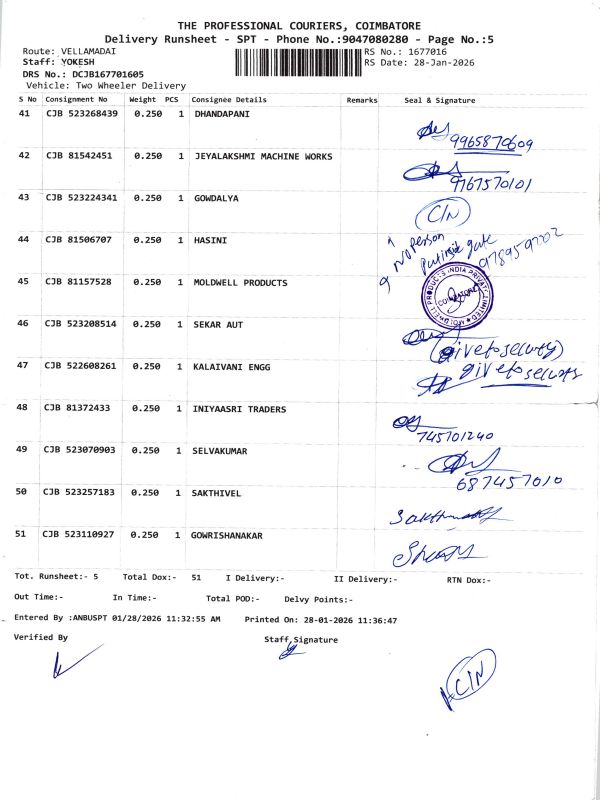 THE PROFESSIONAL COURIERS, COIMBATORE
Delivery Runsheet - SPT - Phone No.:9047080280 - Page No.:5
Route: VELLAMADAI RS No.: 1677016
Staff: YOKESH RS Date: 28-Jan-2026
DRS No.: DCJB167701605
Vehicle: Two Wheeler Delivery
S No Consignment No Weight PCS Consignee Details Remarks Seal & Signature
41 CJB 523268439 0.250 1 DHANDAPANI
9965870609
42 CJB 81542451 0.250 1 JEYALAKSHMI MACHINE WORKS
9767570101
43 CJB 523224341 0.250 1 GOWDALYA
C/N
44 CJB 81506707 0.250 1 HASINI
No person
Put inside gate
45 CJB 81157528 0.250 1 MOLDWELL PRODUCTS
MOLDWELL PRODUCTS INDIA PRIVATE LIMITED
COIMBATORE
46 CJB 523208514 0.250 1 SEKAR AUT
(give to security)
47 CJB 522608261 0.250 1 KALAIVANI ENGG
give to security
48 CJB 81372433 0.250 1 INIYAASRI TRADERS
745701240
49 CJB 523070903 0.250 1 SELVAKUMAR
687457010
50 CJB 523257183 0.250 1 SAKTHIVEL
51 CJB 523110927 0.250 1 GOWRISHANAKAR
Tot. Runsheet:- 5 Total Dox:- 51 I Delivery:- II Delivery:- RTN Dox:-
Out Time:- In Time:- Total POD:- Delvy Points:-
Entered By :ANBUSPT 01/28/2026 11:32:55 AM Printed On: 28-01-2026 11:36:47
Verified By Staff Signature
C/N